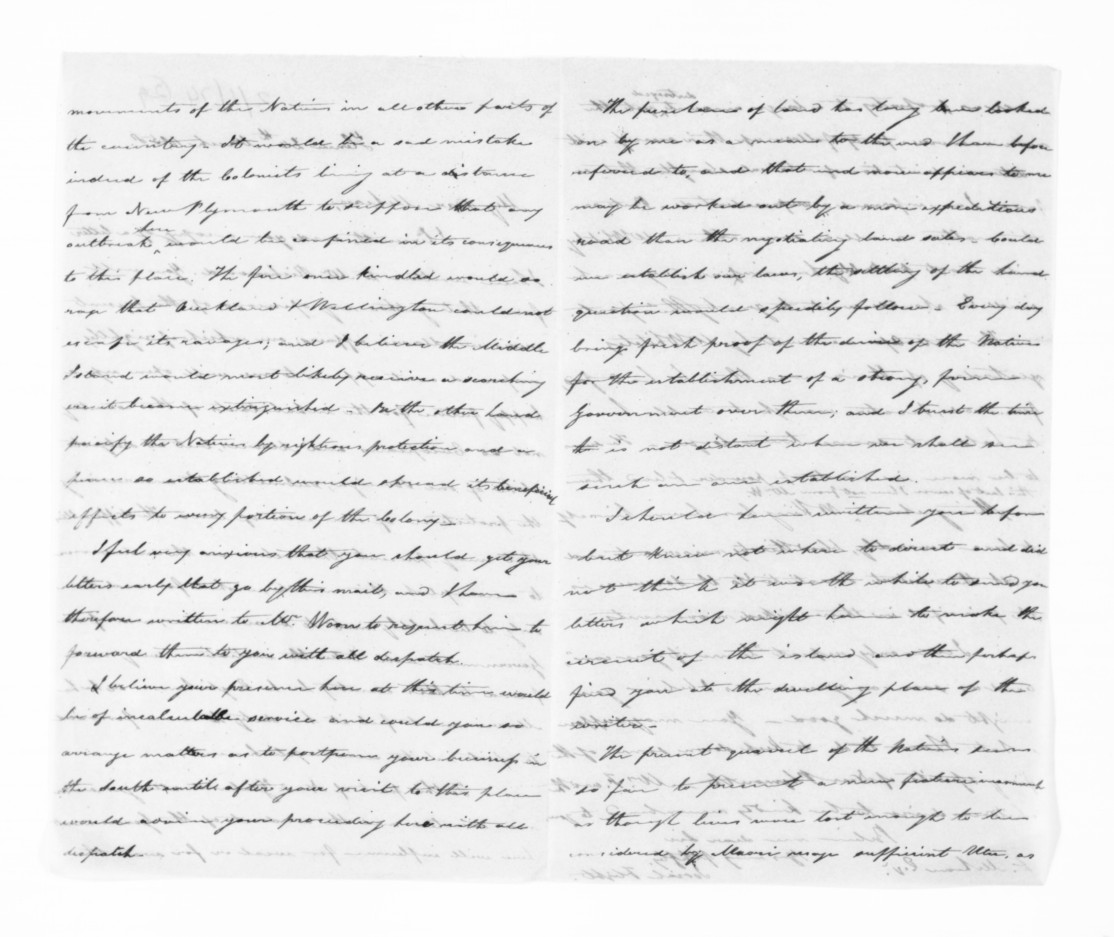 movements of the Natives in all other parts of
the country. It would be a sad mistake
indeed of the Colonists living at a distance
from New Plymouth to suppose that any
outbreak here would be confined in its consequences
to this place. The fire once kindled would so
rage that Auckland & Wellington could not
escape its ravages; and I believe the Middle
Island would most likely receive a scorching
ere it became extinguished. On the other hand
pacify the Natives by righteous protection and a
peace so established would spread its beneficial
effects to every portion of the Colony.
I feel very anxious that you should get your
letters early that go by this mail, and I have
therefore written to Mr. Woon to request him to
forward them to you with all despatch.
I believe your presence here at this time would
be of incalculable service and could you so
arrange matters as to postpone your business in
the South until after your visit to this place
would advise your proceeding here with all
despatch.
The purchase of land has long been looked
on by me as a means to the end I have before
referred to, and that end now appears to me
may be worked out by a more expeditious
road than the negotiating land sales. Could
we establish our laws, the settling of the land
question would speedily follow. Every day
brings fresh proof of the desire of the Natives
for the establishment of a strong, firm
Government over them; and I trust the time
is not distant when we shall see
such an one established.
I should have written you before
but knew not where to direct and did
not think it worth while to send you
letters which might have to make the
circuit of the island and then perhaps
find you at the dwelling place of the
writer.
The present quarrel of the Natives seems
so far to present a new feature inasmuch
as though lives were lost enough to be
considered by Maori usage sufficient Utu, as